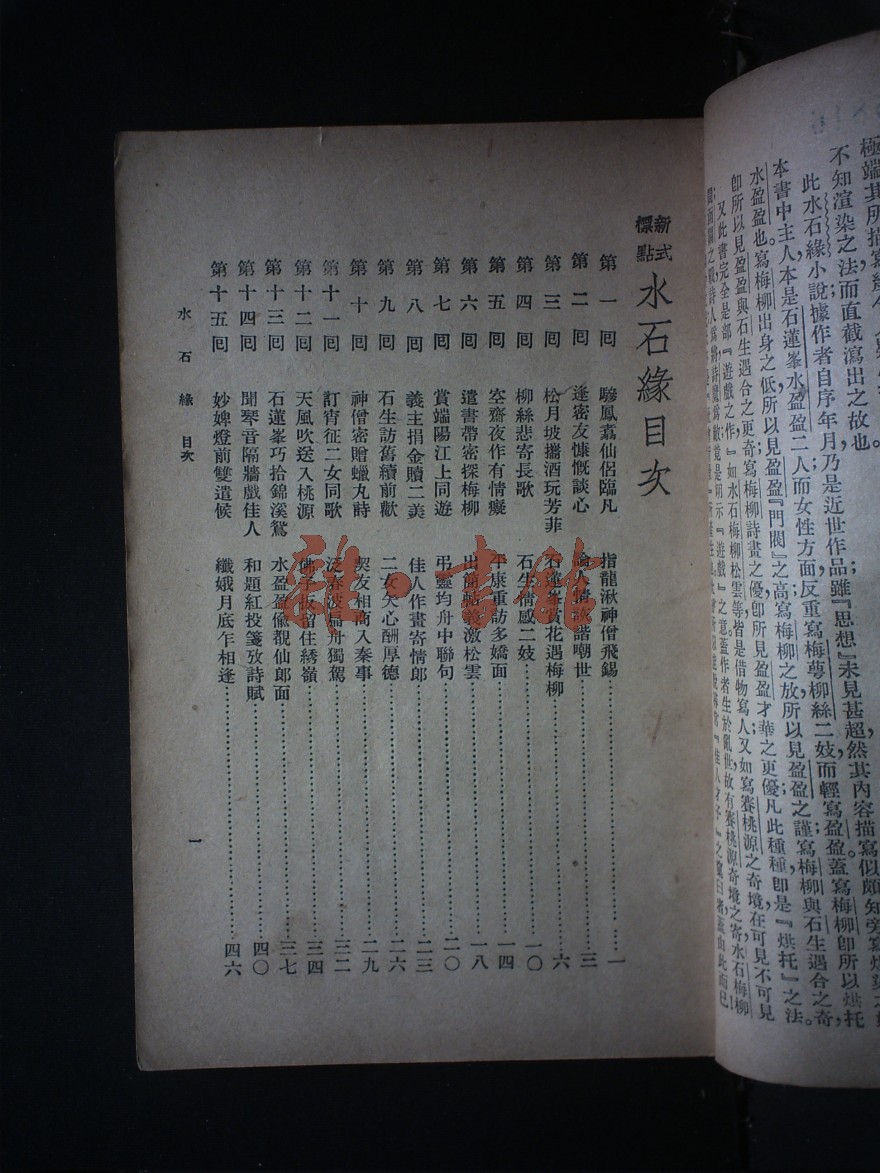 極端其所描寫
不知渲染之法而直截瀉出之故也
此水石緣小說據作者自序年月乃是近世作品雖『思想』未見甚超然其內容描寫似頗知旁寫烘
本書中主人本是石蓮峯水盈盈二人而女性方面反重寫梅萼柳絲二妓而輕寫盈盈蓋寫梅柳卽所以烘托
水盈盈也。寫梅柳出身之低所以見盈盈『門閥』之高寫梅柳之放所以見盈盈之謹寫梅柳與石生遇合之奇,
卽所以見盈盈與石生遇合之更奇寫梅柳詩畫之優卽所見盈盈才華之更優凡此種種卽是『烘托』之法。
又此書完全是部『遊戲之作』如水石梅柳松雲等皆是借物寫人又如寫賽桃源之奇境在可見不可見
新式標點 水石緣目次
第一回 驂鳳翥仙侶臨凡 指龍湫神僧飛錫 一
第二回 逢密友慷慨談心 論人情詼諧嘲世 三
第三回 松月坡攜酒玩芳菲 石蓮峯賞花遇梅柳 六
第四回 柳絲悲寄長歌 石生情感二妓 一〇
第五回 空齋夜作有情癡 平康重訪多嬌面 一四
第六回 遣書帶密探梅柳 出囹圄義激松雲 一八
第七回 賞端陽江上同遊 弔靈均舟中聯句 二〇
第八回 義主捐金贖二美 佳人作畫寄情郎 二三
第九回 石生訪舊續前歡 二女矢心酬厚德 二六
第十回 神僧密贈蠟丸詩 契友相商入秦事 二九
第十一回 訂宵征二女同歌 泛春波扁舟獨駕 三二
第十二回 天風吹送入桃源 佛手扳留住綉嶺 三四
第十三回 石蓮峯巧拾錦溪鴛 水盈盈偷覩仙郎面 三七
第十四回 聞琴音隔牆戲佳人 和題紅投箋攷詩賦 四〇
第十五回 妙婢燈前雙遣候 纖娥月底乍相逢 四六
水石緣 目次
一
雜·書館